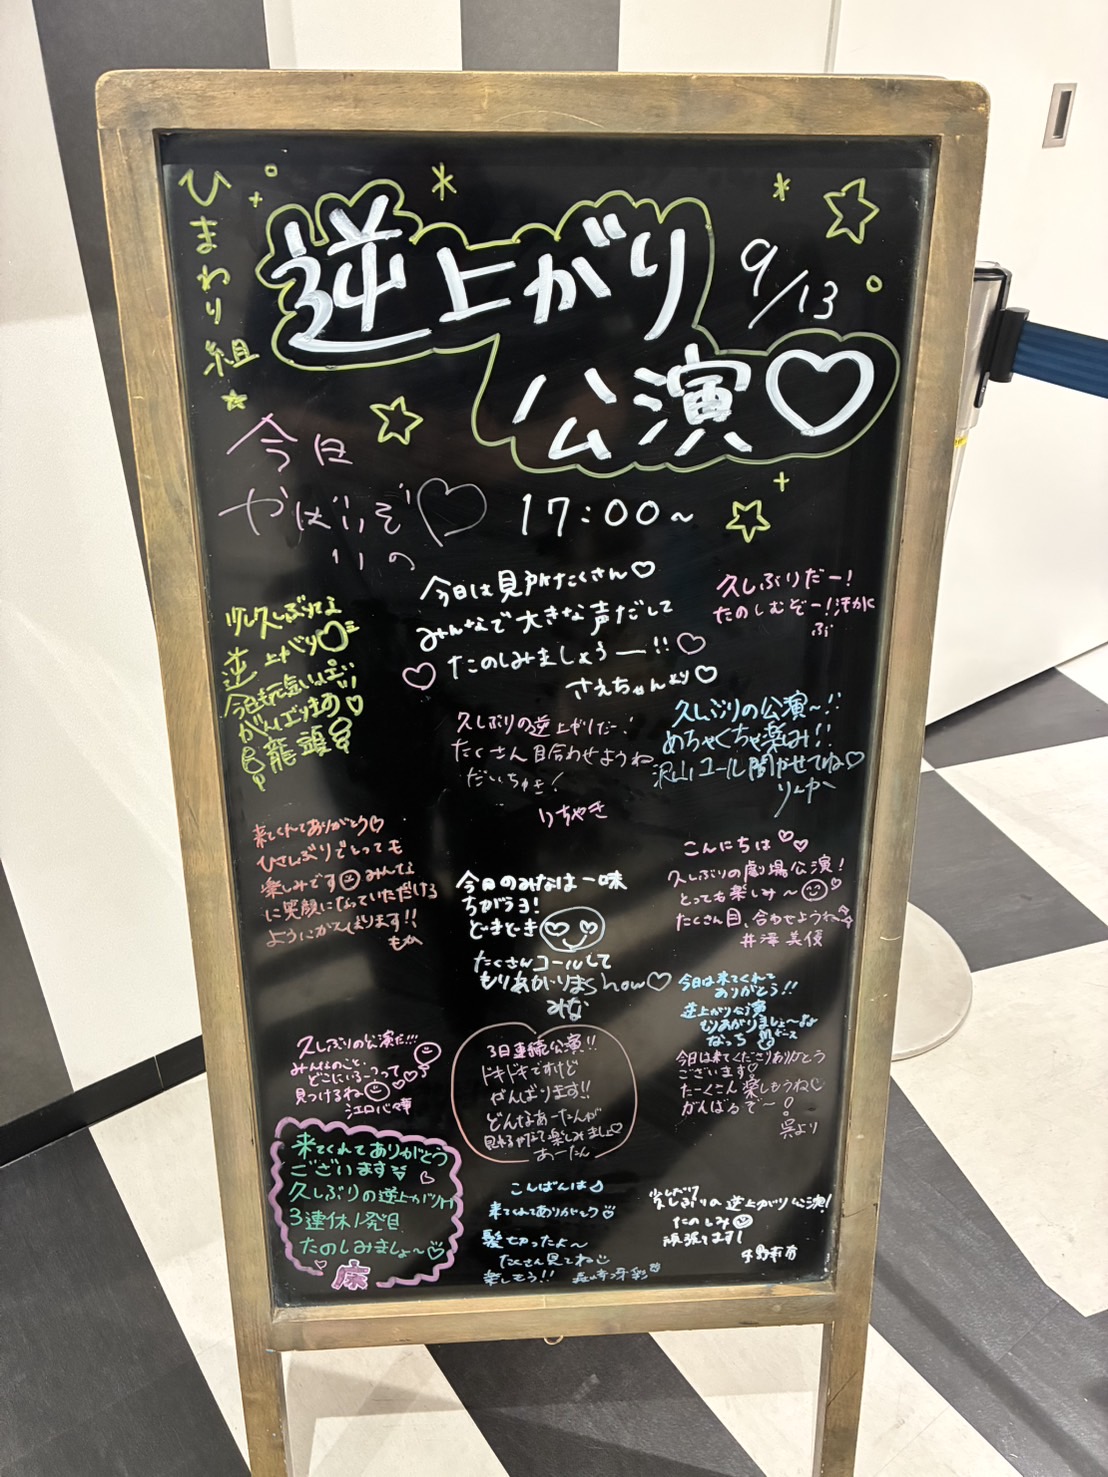 ひまわり組
逆上がり
公演
9/13
今日
やばいぞ
りの
17:00~
今日は見所たくさん♡
みんなで大きな声だして
たのしみましょうー!!
さえちゃんより♡
久しぶりだー!
たのしむぞー!
少し久しぶりてよ
逆上がり
今日も元気いっぱい
がんばります♡
龍頭
久しぶりの逆上がりだー!
たくさん目合わせようね
だいちゅき!
りちゃき
久しぶりの公演~!!
めちゃくちゃ楽しみ!!
沢山コール聞かせてね♡
りんか
来てくれてありがとう♡
ひさしぶりでとっても
楽しみです みんな
に笑顔になっていただける
ようにがんばります!!
もか
今日のみなは一味
ちがうヨ!
どきどき
たくさんコールして
もりあがりまshow♡
みな
こんにちは
久しぶりの劇場公演!
とっても楽しみ~
たくさん目、合わせようね
井澤美優
今日は来てくれて
ありがとう!!
逆上がり公演
もりあがりましょ~
なっち
久しぶりの公演だ!!!
みんなのこと、
どこにいるーつって
見つけるね
江口心々華
3日連続公演!!
ドキドキですけど
がんばります!!
どんなあーたんが
見れるかなて楽しみましょ♡
あーたん
今日は来てくださりありがとう
ございます
たーくさん楽しもうね♡
がんばるぞ~!
呉より
来てくれてありがとう
ございます
久しぶりの逆上がり
3連休1発目
たのしみましょ~♡
こんばんは
来てくれてありがとう
髪切ったよ~
たくさん見てね
楽しもう!!
森﨑冴彩
久しぶりの逆上がり公演!
たのしみ
頑張ります!